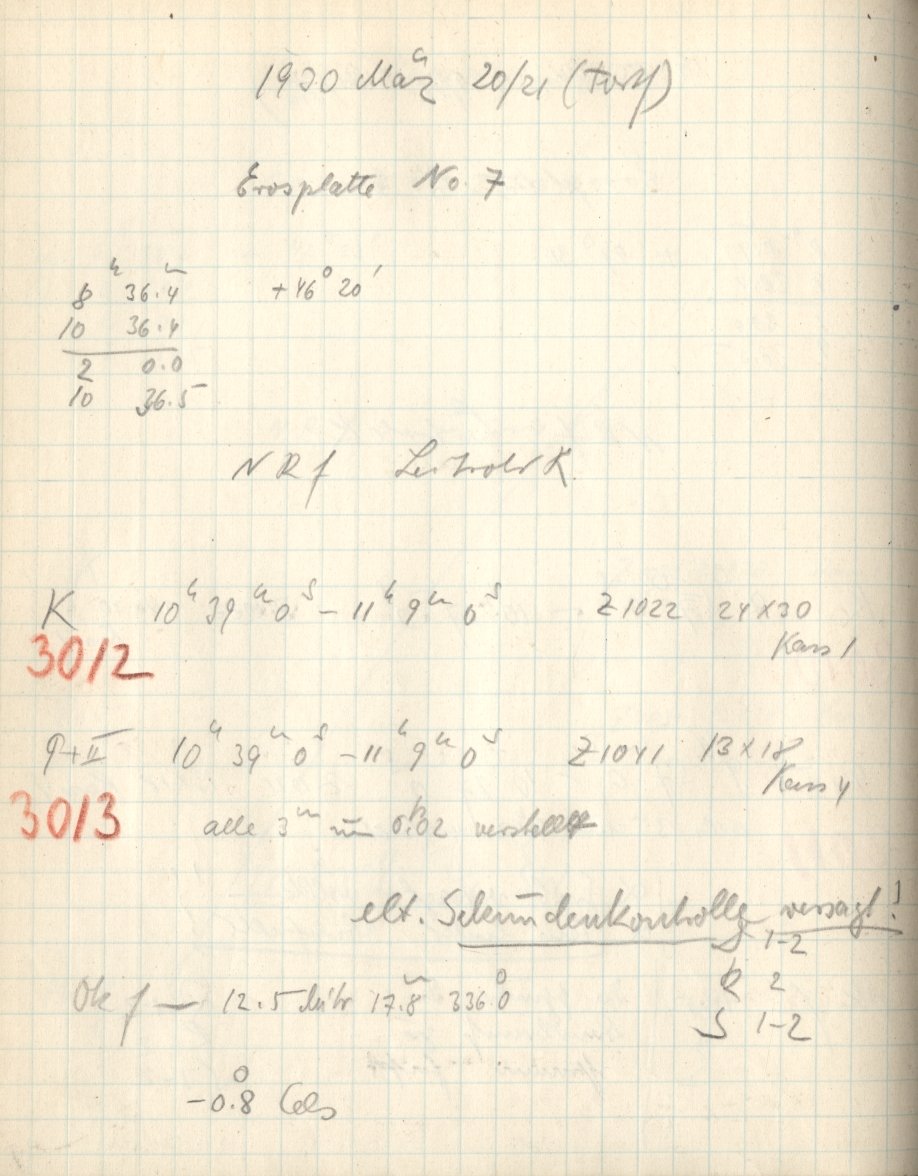 1930 März 20/21 (Forts)
Erosplatte No. 7
8ʰ 36.4ᵐ +46° 20'
10 36.4
2 0.0
10 36.5
NRf K.
K 10ʰ 39ᵐ 0ˢ – 11ʰ 9ᵐ 0ˢ Z1022 24×30
Kass 1
30/2
P+II 10ʰ 39ᵐ 0ˢ – 11ʰ 9ᵐ 0ˢ Z1041 13×18
Kass 4
30/3
alle 3ᵐ um 0.02 verstellt
elt. Sekundenkontrolle versagt!
S 1-2
R 2
S 1-2
Ok f — 12.5 17.8 336.0
-0.8° Cels